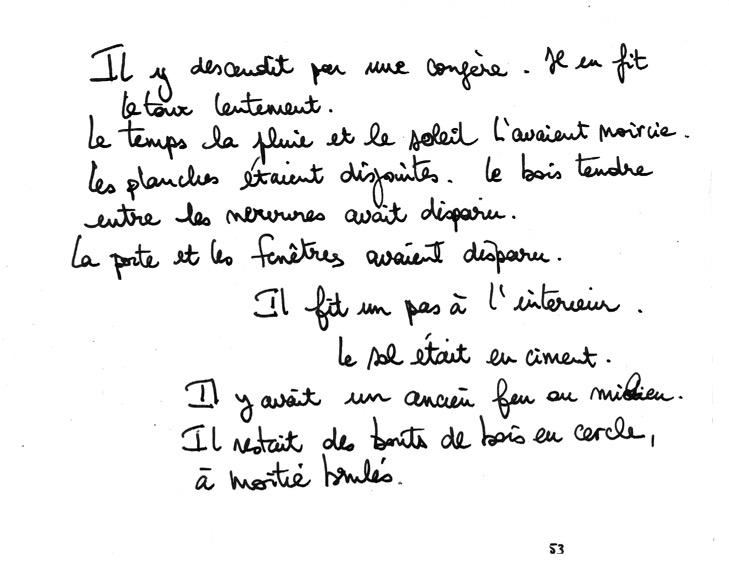 Il y descendit par une congère. Il en fit
le tour lentement.
Le temps la pluie et le soleil l'avaient noircie.
Les planches étaient disjointes. Le bois tendre
entre les nervures avait disparu.
La porte et les fenêtres avaient disparu.
Il fit un pas à l'interieur.
Le sol était en ciment.
Il y avait un ancien feu au milieu.
Il restait des bouts de bois en cercle,
à moitié brulés.
53